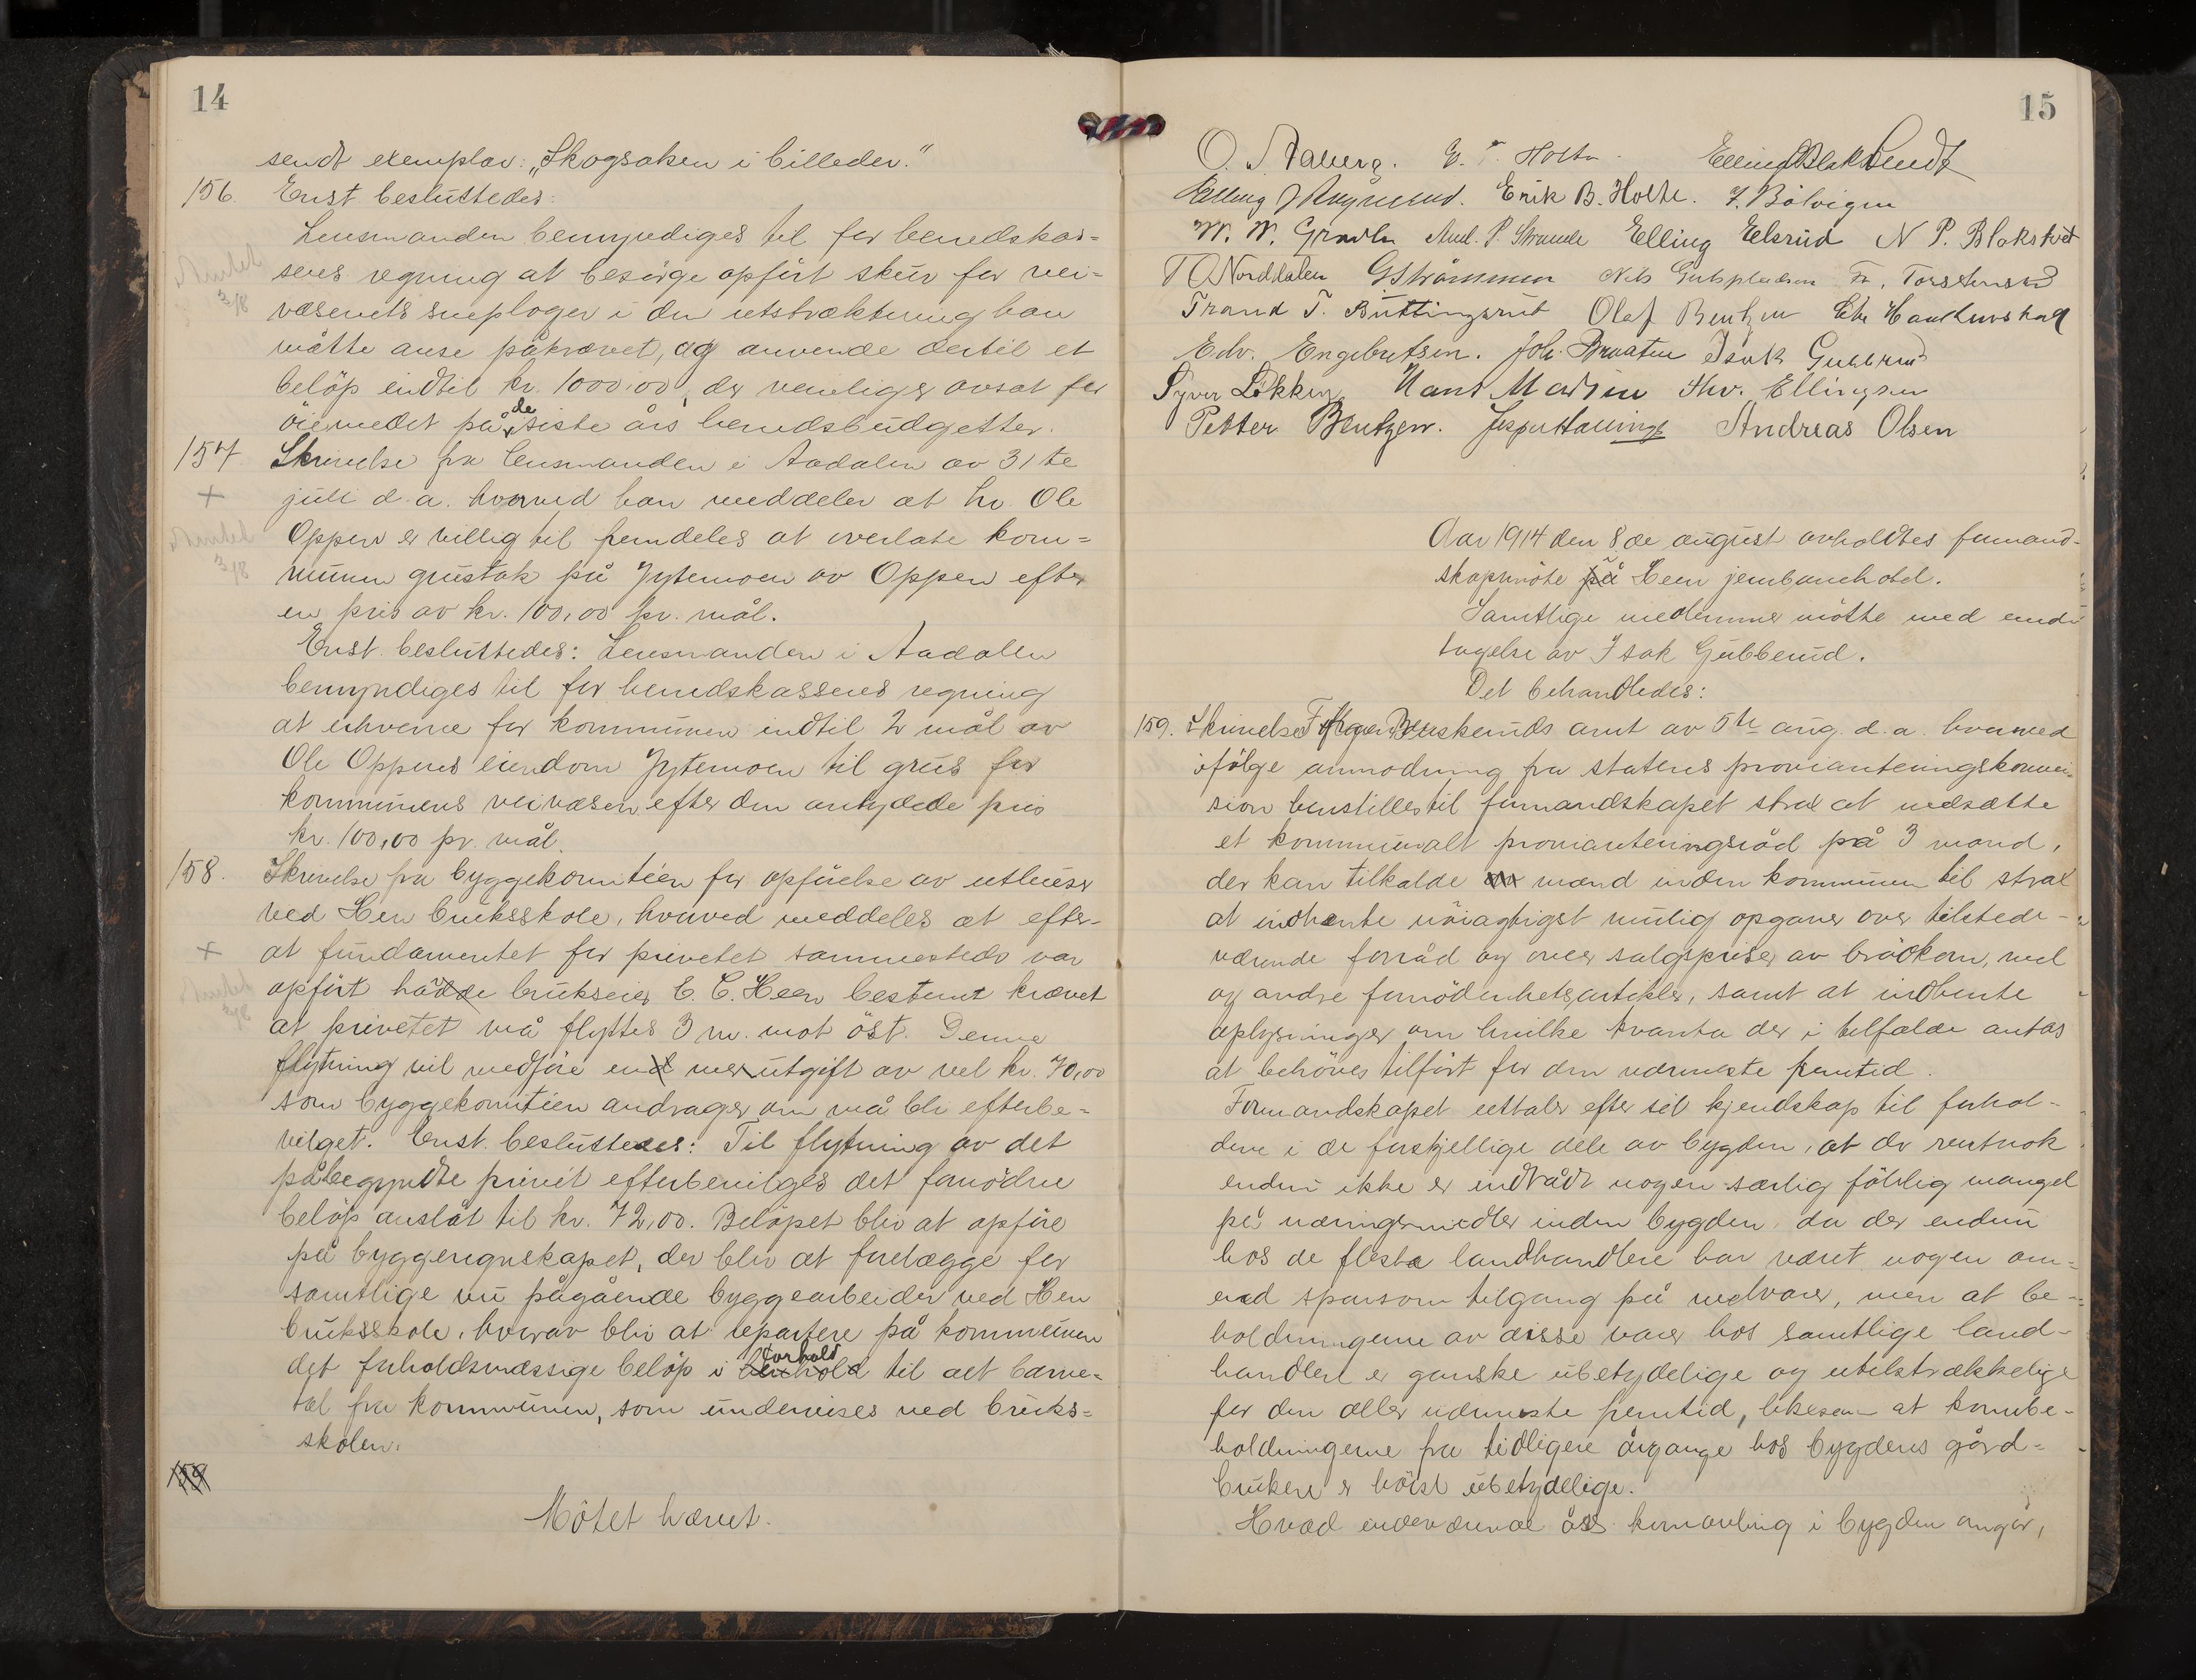 14
sendt exemplar: „Skogsaken i billeder."
156. Enst. besluttedes:
Lensmanden bemyndiges til for herredskas=
sens regning at besørge opført skur for vei=
væsenets sneploger i den utstrækning han
måtte anse påkrævet, og anvende dertil et
beløp indtil kr. 1000,00, der venligst avsat for
øiemedet på de siste års herredsbudgetter.
157 Skrivelse fra lensmanden i Aadalen av 31te
+ juli d.a. hvorved han meddeler at hr. Ole
Oppen er villig til fremdeles at overlate kom=
munen grustak på Jytemoen av Oppen efter
en pris av kr. 100,00 pr. mål.
Enst. besluttedes: Lensmanden i Aadalen
bemyndiges til for herredskassens regning
at erhverve for kommunen indtil 2 mål av
Ole Oppens eiendom Jytemoen til grus for
kommunens veivæsen efter den antydede pris
kr. 100,00 pr. mål.
158. Skrivelse fra byggekomitéen for opførelse av uthuser
ved Hen bruksskole, hvorved meddeles at efter-
+ at fundamentet for privetet sammesteds var
opført hadde brukseier E. C. Heen bestemt krævet
at privetet må flyttes 3 m. mot øst. Denne
flytning vil medføre en mer utgift av vel kr. 70,00
som byggekomitéen andrager om må bli efterbe=
vilget. Enst. besluttedes: Til flytning av det
påbegyndte privét efterbevilges det fornødne
beløp anslåt til kr. 72,00. Beløpet blir at opføre
på byggeregnskapet, der blir at forelægge for
samtlige nu pågående byggearbeider ved Hen
bruksskole, hvorav blir at repartere på kommunen
det forholdsmæssige beløp i forhold til det barne=
tal fra kommunen, som undervises ved bruks=
skolen.
159
Møtet hævet.
15
O. Aaberg. E. T. Holte. Elling Blakstvedt
Elling J Rugnerud. Erik B. Holte. J. Bølvigen
And. P. Strande Elling Elsrud N P. Blakstvet
T O Norddalen G Strømmen Nils Fr. Torstensrud
Trond T. Buttingsrud Olaf Bentzen
Edv. Engebretsen. Joh. Braaten Isak Gubberud
Syver Løkken Hans Madsen Thv. Ellingsen
Petter Bentzen. Jesper Hallingø Andreas Olsen
Aar 1914 den 8de august avholdtes formand-
skapsmøte på Heen jernbanehotel.
Samtlige medlemmer møtte med und-
tagelse av Isak Gubberud.
Det behandledes:
159. Skrivelse fra Buskeruds amt av 5te aug. d.a. hvorved
ifølge anmodning fra statens provianteringskommi-
sion henstilles til formandskapet strax at nedsætte
et kommunalt provianteringsråd på 3 mand,
der kan tilkalde mænd inden kommunen til strax
at indhente nøiagtigst mulig opgaver over tilstede-
værende forråd og over salgspriser av brødkorn, mel
og andre fornødenhetsartikler, samt at indhente
oplysninger om hvilke kvanta der i tilfælde antas
at behøves tilført for den nærmeste fremtid.
Formandskapet uttaler efter sit kjendskap til forhol-
dene i de forskjellige dele av bygden, at der vistnok
endnu ikke er indtrådt nogen særlig følelig mangel
på næringsmidler inden bygden, da der endnu
hos de fleste landhandlere har været nogen om-
end sparsom tilgang på melvarer, men at be-
holdningerne av disse varer hos samtlige land-
handlere er ganske ubetydelige og utilstrækkelige
for den aller nærmeste fremtid, likesom at kornbe-
holdningerne fra tidligere årgange hos bygdens gård=
brukere er høist ubetydelige.
Hvad indeværende års kornavling i bygden angår,